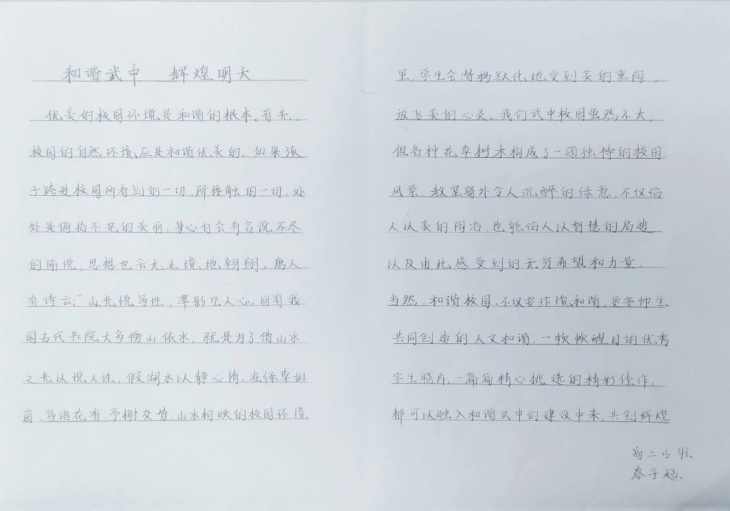 和谐武中 辉煌明天
优美的校园环境是和谐的根本。首先,
校园的自然环境应是和谐优美的,如果孩
子跨进校园所看到的一切,所接触的一切,处
处是俯拾不完的美丽,身心自会有言说不尽
的愉悦,思想也会无止境地翱翔,唐人
有诗云:"山光悦鸟性,潭影空人心。"回看我
国古代书院大多傍山依水,就是为了借山水
之光以悦人性,假湖水以静心情。在绿草如
茵,鸟语花香,亭榭交错,山水相映的校园环境
里,学生会潜移默化地受到美的熏陶,
放飞美的心灵。我们武中校园虽然不大,
但各种花草树木构成了一道独特的校园
风景,教室窗外令人沉醉的绿意,不仅给
人以美的陶冶,也能给人以智慧的启迪
以及由此感受到的无穷希望和力量。
当然,和谐校园,不仅要环境和谐,更要师生
共同创造的人文和谐,一帧帧醒目的优秀
学生照片,一篇篇精心挑选的精彩佳作,
都可以融入和谐武中的建设中来,共创辉煌